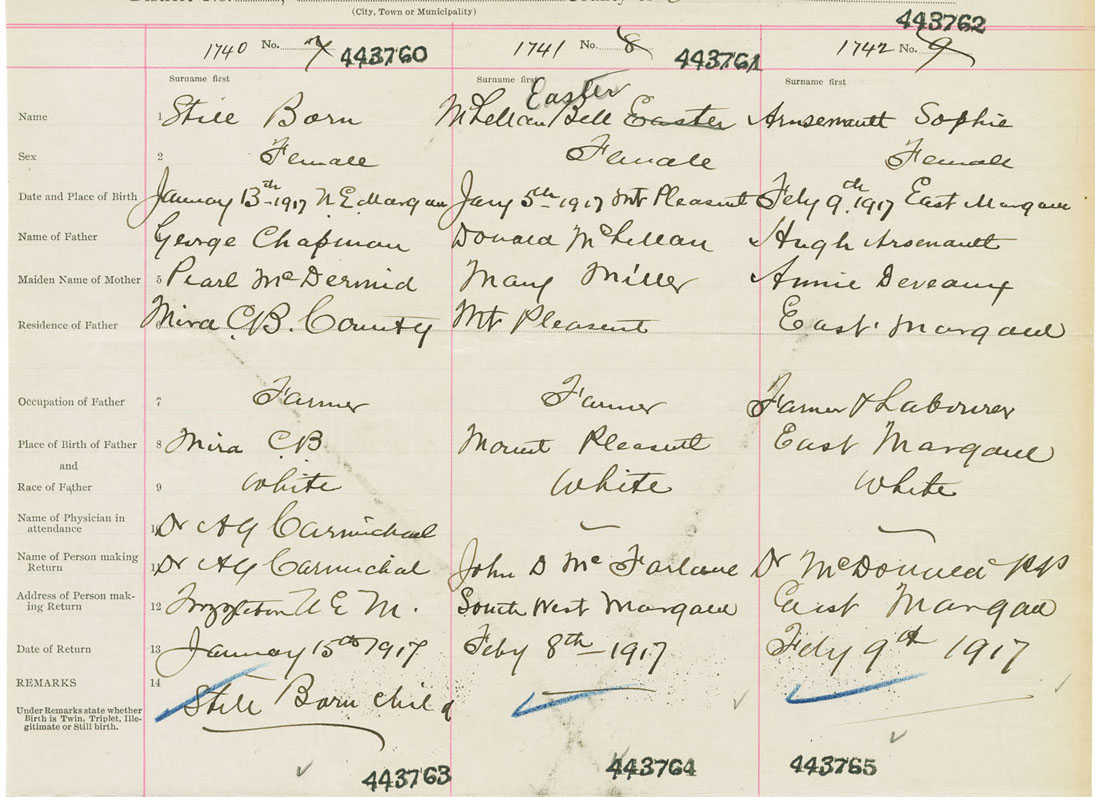 (City, Town or Municipality)
443762
1740 No. 7 443760 1741 No. 8 443761 1742 No. 9
Surname first Surname first Surname first
Easter
Name 1 Still Born McLellan Bell Easter Arsenault Sophie
Sex 2 Female Female Female
Date and Place of Birth January 13th 1917 N E Margaree Jany 5th 1917 Mt Pleasant Feby 9th 1917 East Margaree
Name of Father George Chapman Donald McLellan Hugh Arsenault
Maiden Name of Mother 5 Pearl McDermid Mary Miller Annie Deveaux
Residence of Father Mira C.B. County Mt Pleasent East Margaree
Occupation of Father 7 Farmer Farmer Farmer & Labourer
Place of Birth of Father 8 Mira CB Mount Pleasent East Margaree
and
Race of Father 9 White White White
Name of Physician in
attendance 10 Dr A G Carmichael
Name of Person making
Return 11 Dr A G Carmichal John D McFarlane Dr McDonald PP
Address of Person mak-
ing Return 12 N E M. South West Margaree East Margaree
Date of Return 13 January 15th 1917 Feby 8th 1917 Feby 9th 1917
REMARKS 14 Still Born child
Under Remarks state whether
Birth is Twin, Triplet, Ille-
gitimate or Still birth.
443763 443764 443765